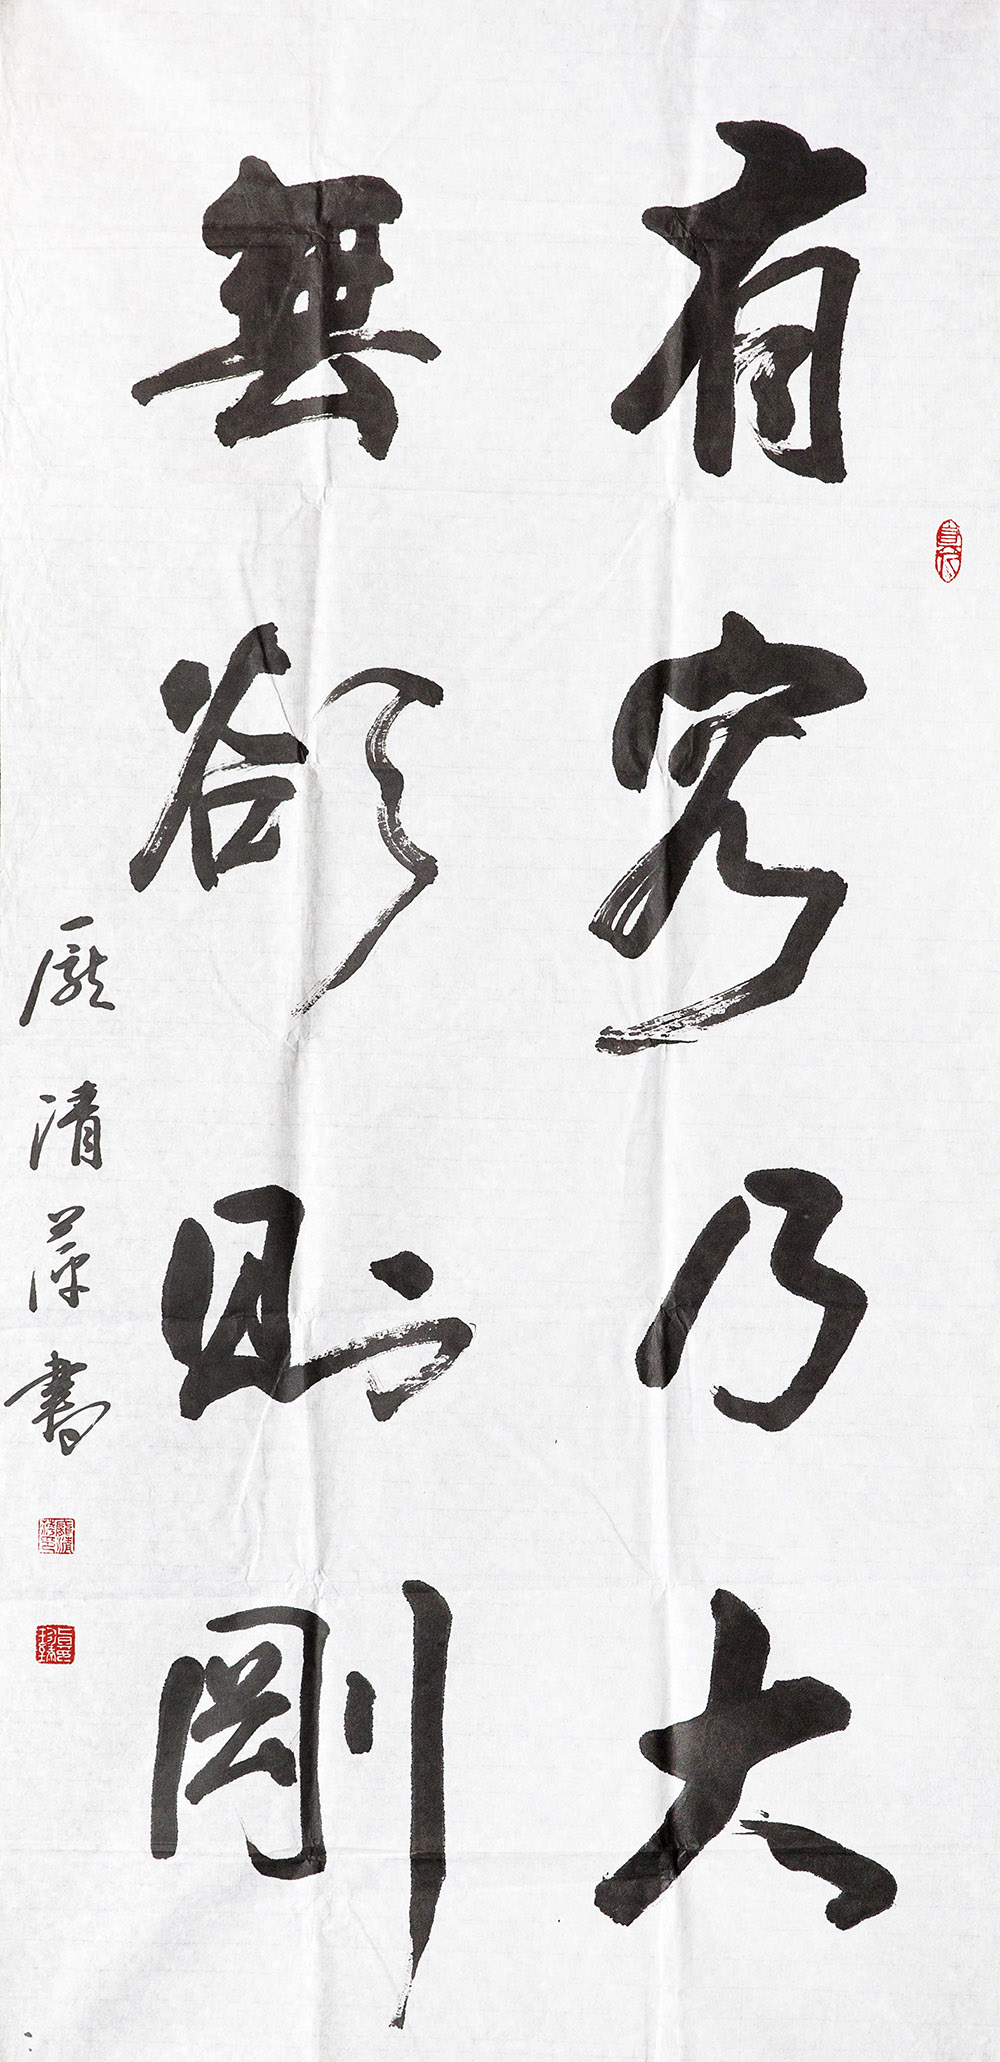 有容乃大
無欲則剛
龐清萍書